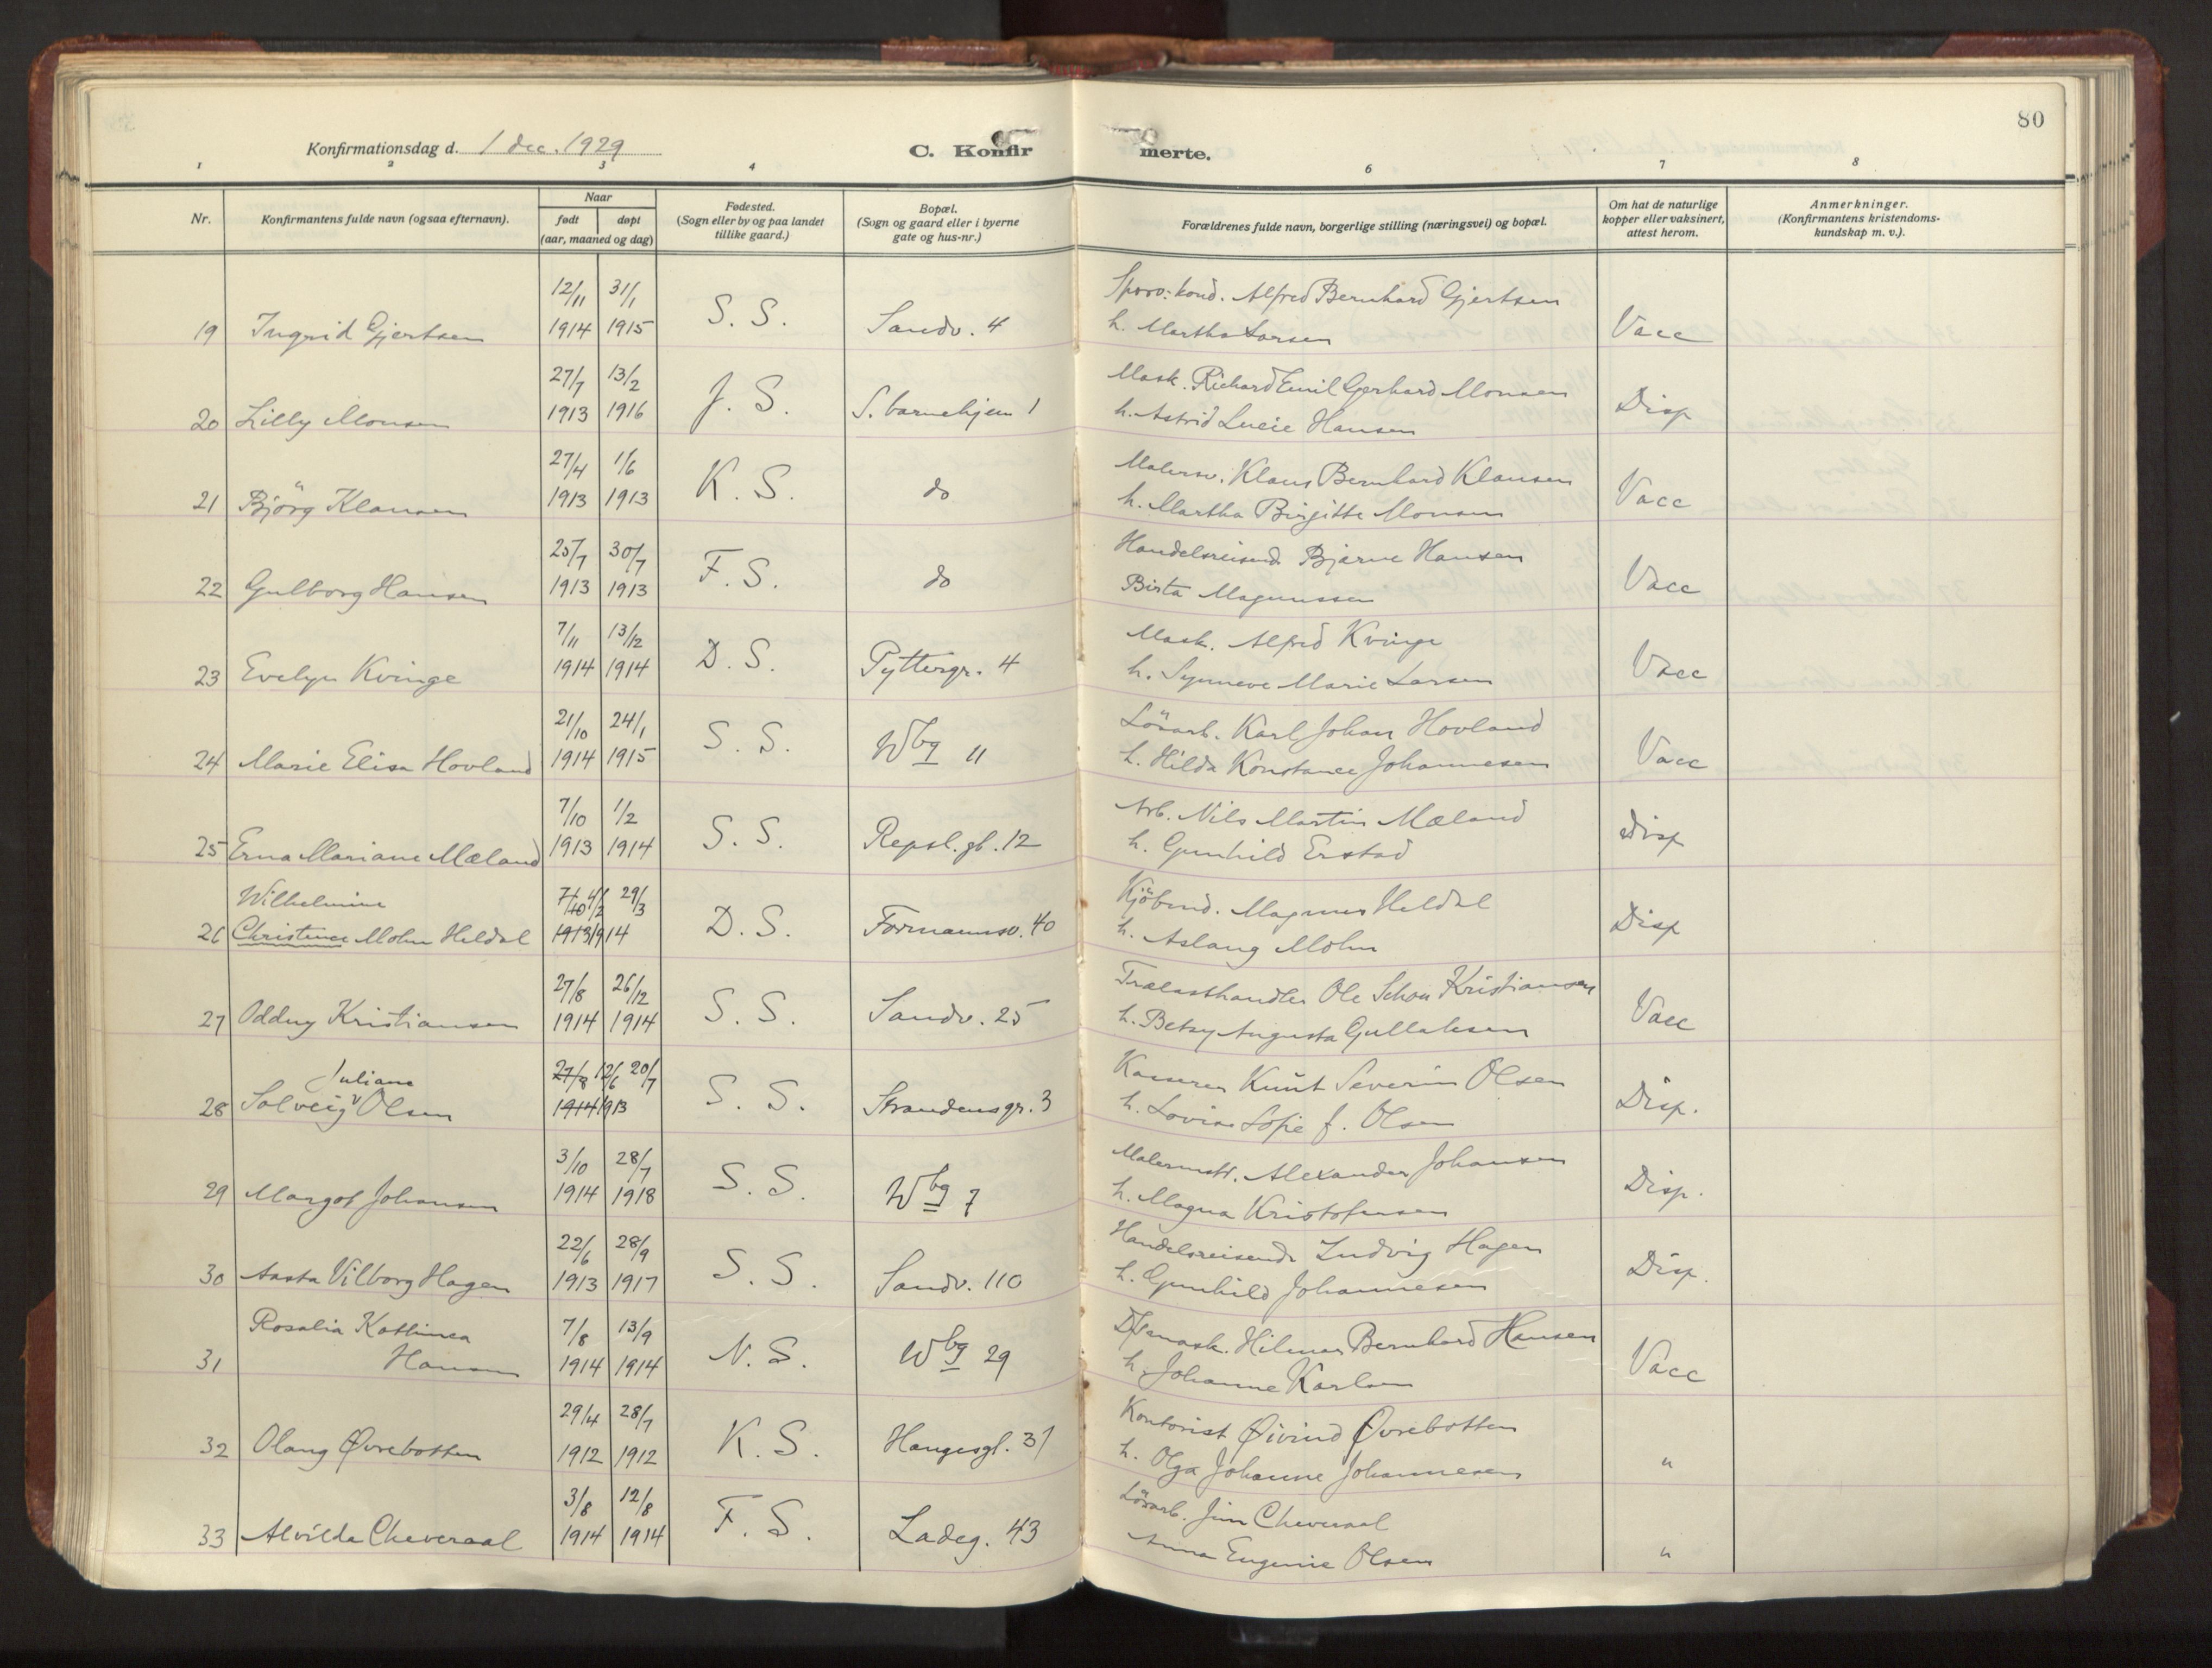 80
Konfirmationsdag d. 1 dec. 1929
C. Konfirmerte.
1 2 3 4 6 7 8
Nr.
Konfirmantens fulde navn (ogsaa efternavn).
Naar
født døpt
(aar, maaned og dag)
Fødested.
(Sogn eller by og paa landet
tillike gaard.)
Bopæl.
(Sogn og gaard eller i byerne
gate og hus-nr.)
Forældrenes fulde navn, borgerlige stilling (næringsvei) og bopæl.
Om hat de naturlige
kopper eller vaksinert,
attest herom.
Anmerkninger.
(Konfirmantens kristendoms-
kundskap m. v.).
12/11 31/1 Sporv. kond. Alfred Bernhard Gjertsen
19 Ingrid Gjertsen 1914 1915 S. S. Sandv. 4 h. Martha Larsen Vacc
27/7 13/2 Mask. Richard Emil Gerhard Monsen
20 Lilly Monsen 1913 1916 J. S. S. barnehjem 1 h. Astrid Lucie Hansen Disp
27/4 1/6 Malersv. Klaus Bernhard Klausen
21 Björg Klausen 1913 1913 K. S. do h. Martha Birgitte Monsen Vacc
25/7 30/7 Handelsreisend Bjarne Hansen
22 Gulborg Hansen 1913 1913 F. S. do Birta Magnussen Vacc
7/11 13/12 Mask. Alfred Kvinge
23 Evelyn Kvinge 1914 1914 D. S. Pyttergr. 4 h. Synneve Marie Larsen Vacc
21/10 24/1 Lösarb. Karl Johan Hovland
24 Marie Elisa Hovland 1914 1915 S. S. Wbg 11 h. Hilda Konstance Johannesen Vacc
7/10 1/2 Arb. Nils Martin Mæland
25 Erna Mariane Mæland 1913 1914 S. S. Repsl. gt. 12 h. Gunhild Erstad Disp
Wilhelmine 7/10 4/2 29/3 Kjöbmd. Magnus Heldal
26 Christence Mohn Heldal 1913 1914 D. S. Formannsv. 40 h. Aslaug Mohn Disp
27/8 26/12 Trælasthandler Ole Schou Kristiansen
27 Oddny Kristiansen 1914 1914 S. S. Sandv. 25 h. Betzy Augusta Gullaksen Vacc
Juliane 27/8 12/6 20/7 Knut Severin Olsen
28 Solveig Olsen 1914 1913 S. S. Strandensgr. 3 h. Lovise Sofie f. Olsen Disp.
3/10 28/7 Malermstr. Alexander Johansen
29 Margot Johansen 1914 1918 S. S. Wbg 7 h. Magna Kristofersen Disp.
22/6 28/9 Handelsreisende Ludvig Hagen
30 Aasta Vilborg Hagen 1913 1917 S. S. Sandv. 110 h. Gunhild Johannesen Disp.
Rosalia Kathinca 7/8 13/9 Hilmar Bernhard Hansen
31 Hansen 1914 1914 N. S. Wbg 29 h. Johanne Karlsen Vacc
29/4 28/7 Kontorist Øivind Øvrebotten
32 Olaug Øvrebotten 1912 1912 K. S. Haugesgt. 37 h. Olga Johanne Johannesen "
3/8 12/8 Lösarb. Jim Cheveraal
33 Alvilda Cheveraal 1914 1914 F. S. Ladeg. 43 Anna Eugenie Olsen "